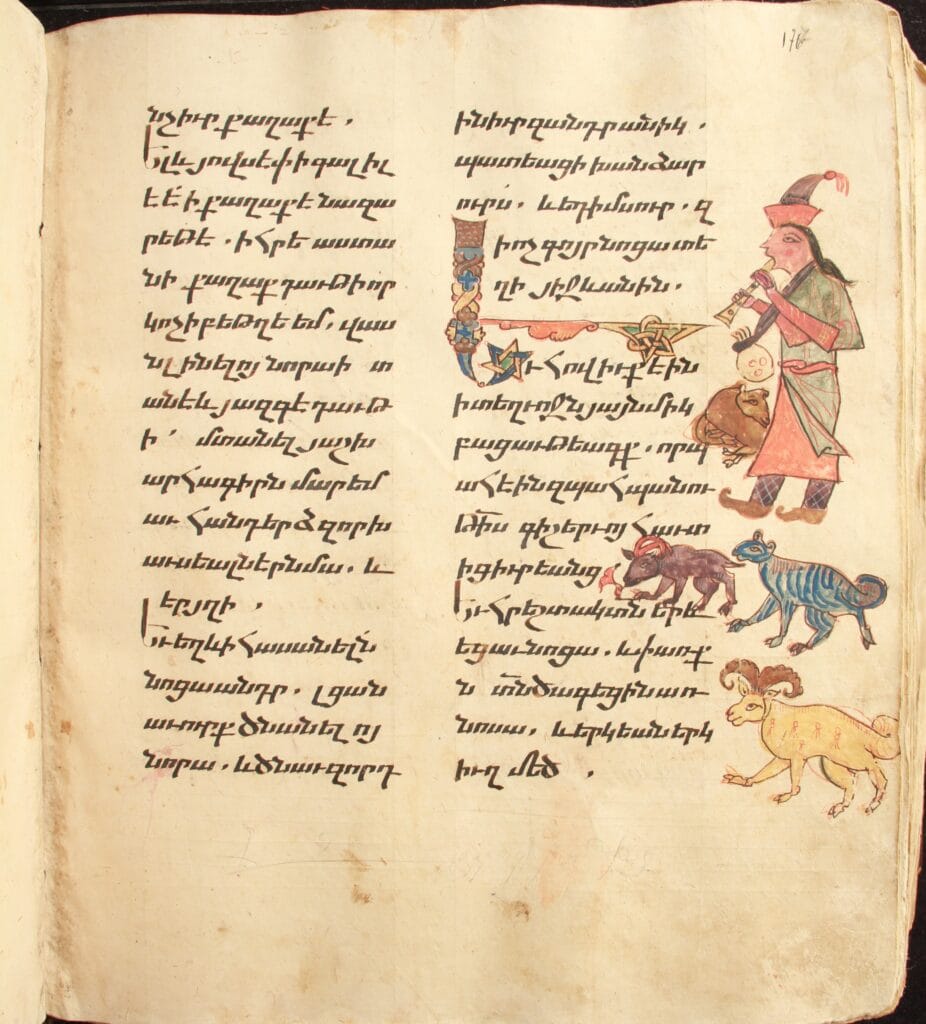 նչիւր քաղաքէ .
Ել և յովսէփ ի գալիլ
էէ ի քաղաքէ նազա
րեթէ . ի հրէաստա
նի քաղաք դաւթի որ
կոչի բեթղեեմ . վաս
ն լինելոյ նորա ի տ
անէ և յազգէ դաւթ
ի ՝ մտանել յաշխ
արհագիրն մարեմ
աւ հանդերձ զոր խ
աւսեալն էր նմա . և
էր յղի .
Եւ եղև ի հասանելն
նոցա անդր . լցան
աւուրք ծնանելոյ
նորա . և ծնաւ զորդ
ին իւր զանդրանիկ .
պատեաց ի խանձար
ուրս . և եդ ի մսուր . զ
ի ոչ գոյր նոցա տե
ղի յիջևանին .
Եւ հովիւք էին
ի տեղւոջն յայնմիկ
բացաւթեագք . որ պ
ահէին զպահպանու
թիս գիշերւոյ հաւտ
ից իւրեանց
Եւ հրեշտակ տն երև
եցաւ նոցա . և փառք
ն տն ծագեցին առ
նոսա . և երկեան երկ
իւղ մեծ .